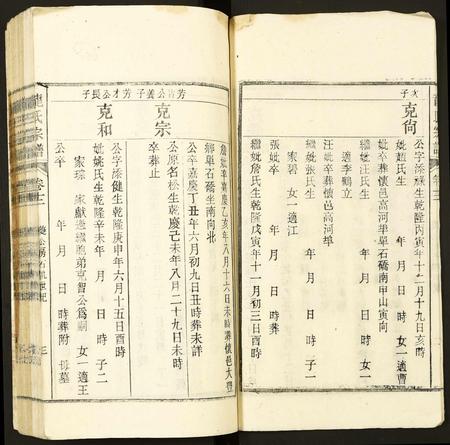 次子
克尙
公字添祿生乾隆丙寅年十二月十九日亥時
妣趙氏生 年 月 日 時 女一適曹
妣卒葬懷邑高河埠單石橋南甲山寅向
繼妣汪氏生 年 月 日 時 女一
適李鶴立
汪妣卒葬懷邑高河埠
繼妣張氏生 年 月 日 時 子一
家碧 女一適江
張妣卒 年 月 日 時
繼妣詹氏生乾隆戊寅年十一月初三日酉時
詹妣卒嘉慶乙亥年八月十六日未時葬懷邑大塘
鄉單石橋坐南向北
公卒嘉慶丁丑年六月初九日丑時葬未詳
芳才公長子
克宗
公原名松生乾慶己未年八月二十九日未時
卒葬止
芳肯公養子
克和
公字添健生乾隆庚申年六月十五日酉時
妣姚氏生乾隆辛未年 月 日 時 子二
家瑞 家獻 胞弟克智公爲嗣 女一適王
公卒 年 月 日 時葬附 母墓
宗譜
卷十二
三